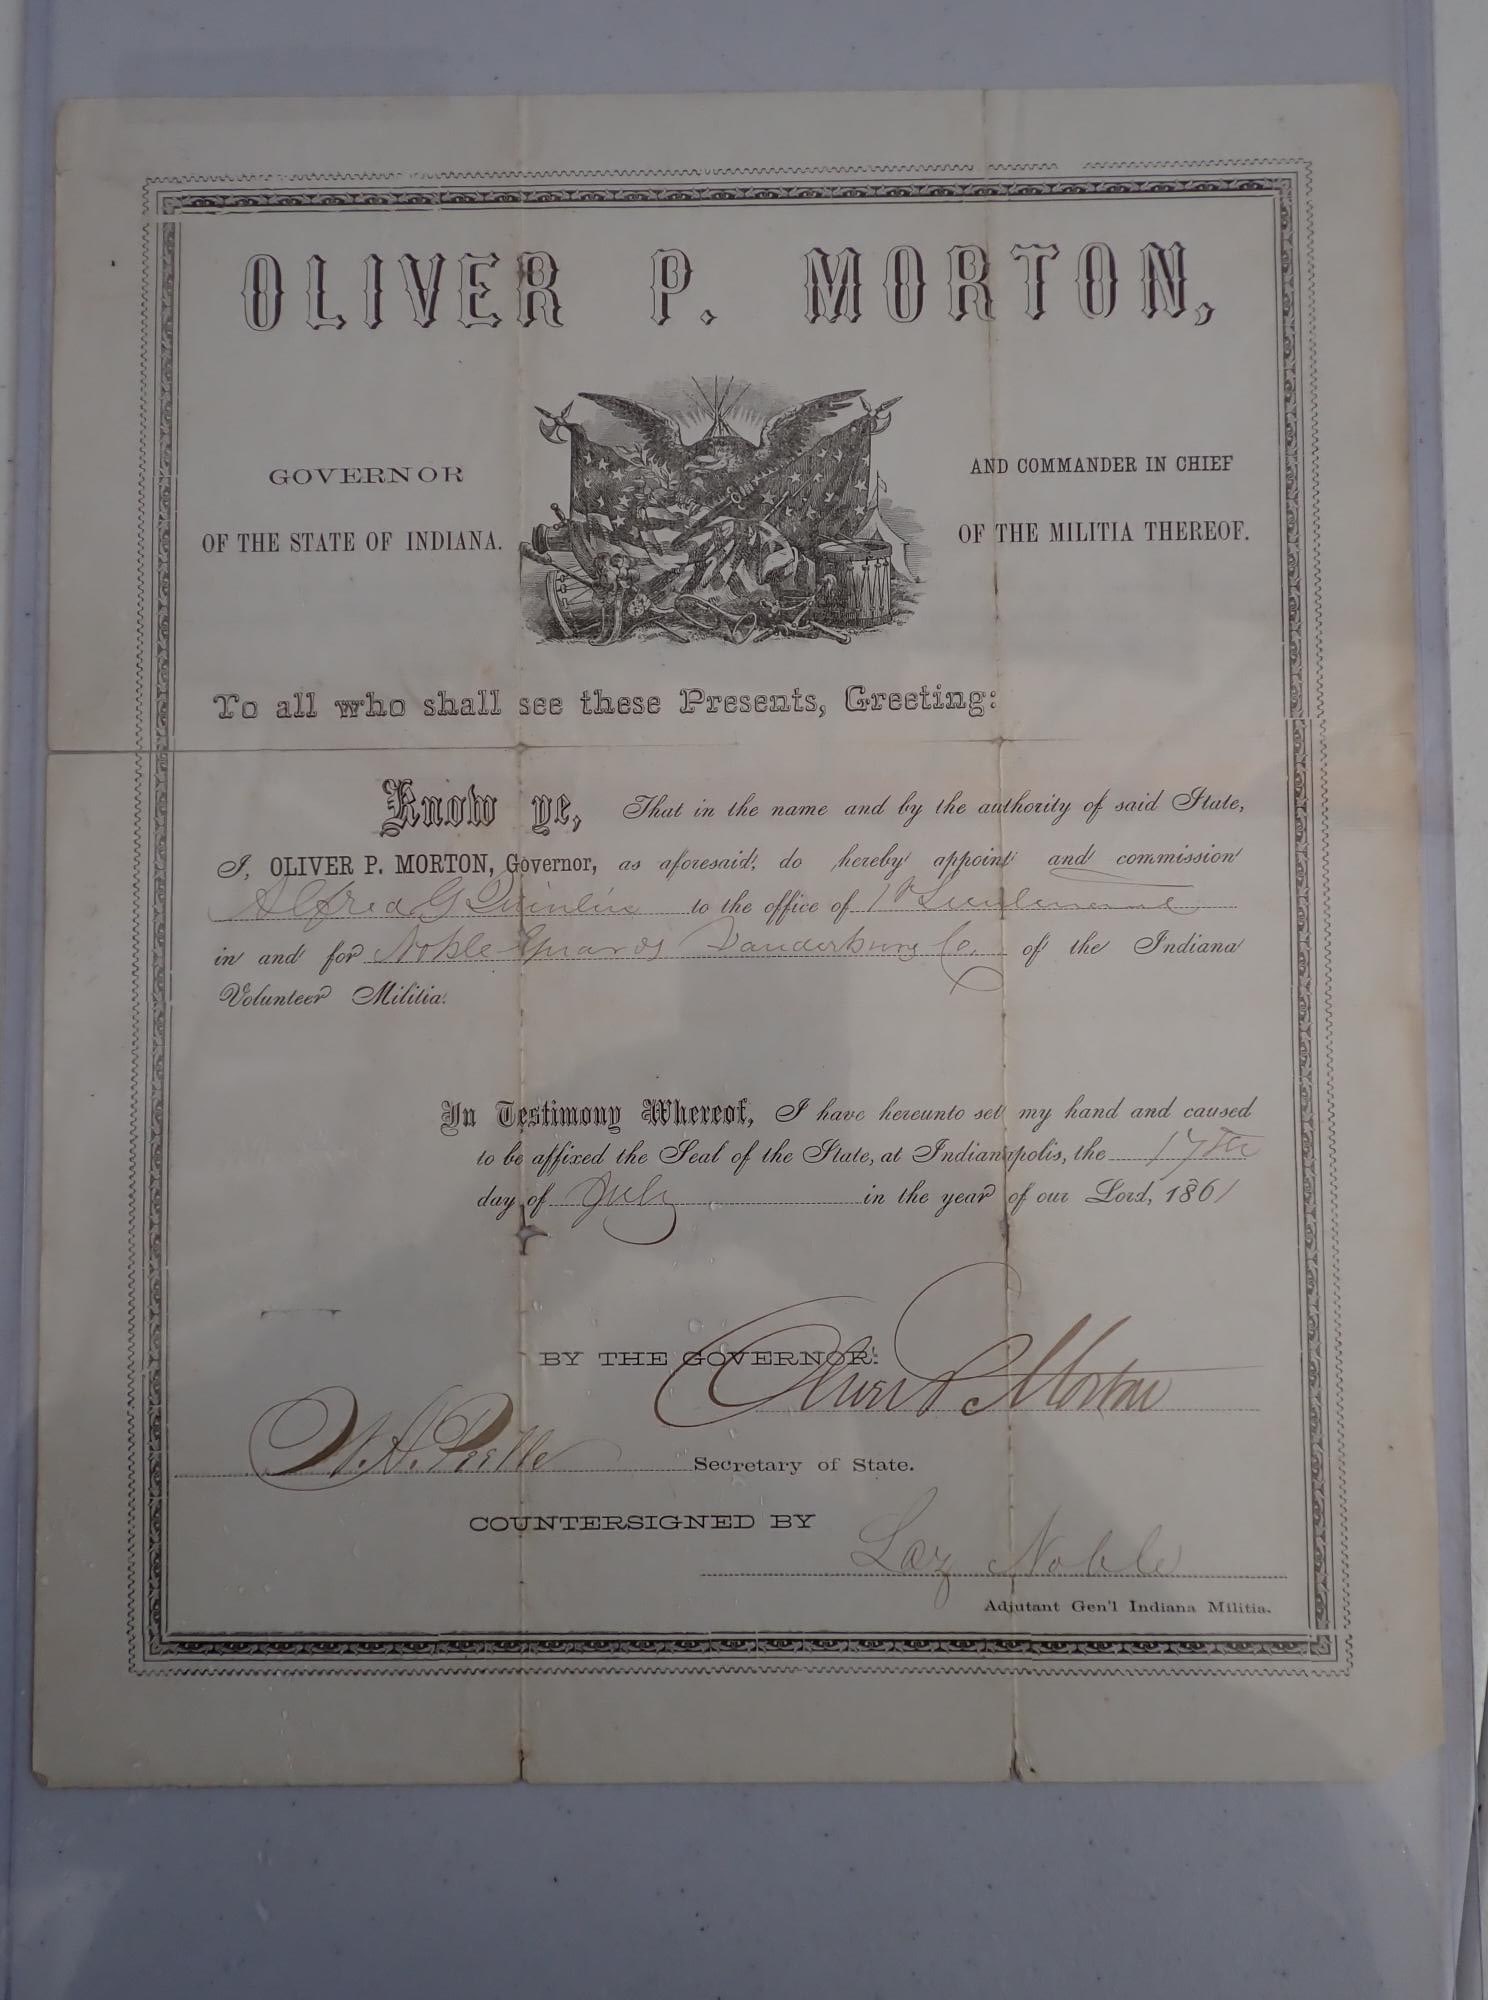 OLIVER P. MORTON,
GOVERNOR
OF THE STATE OF INDIANA.
AND COMMANDER IN CHIEF
OF THE MILITIA THEREOF.
To all who shall see these Presents, Greeting:
Know ye, That in the name and by the authority of said State,
I, OLIVER P. MORTON, Governor, as aforesaid, do hereby appoint and commission
Alfred G Quinlin to the office of 1st Lieutenant
in and for Noble Guards Vanderburg Co. of the Indiana
Volunteer Militia.
In Testimony Whereof, I have hereunto set my hand and caused
to be affixed the Seal of the State, at Indianapolis, the 17th
day of July in the year of our Lord, 1861
BY THE GOVERNOR: Oliver P. Morton
W. H. Peelle Secretary of State.
COUNTERSIGNED BY
Laz Noble
Adjutant Gen'l Indiana Militia.